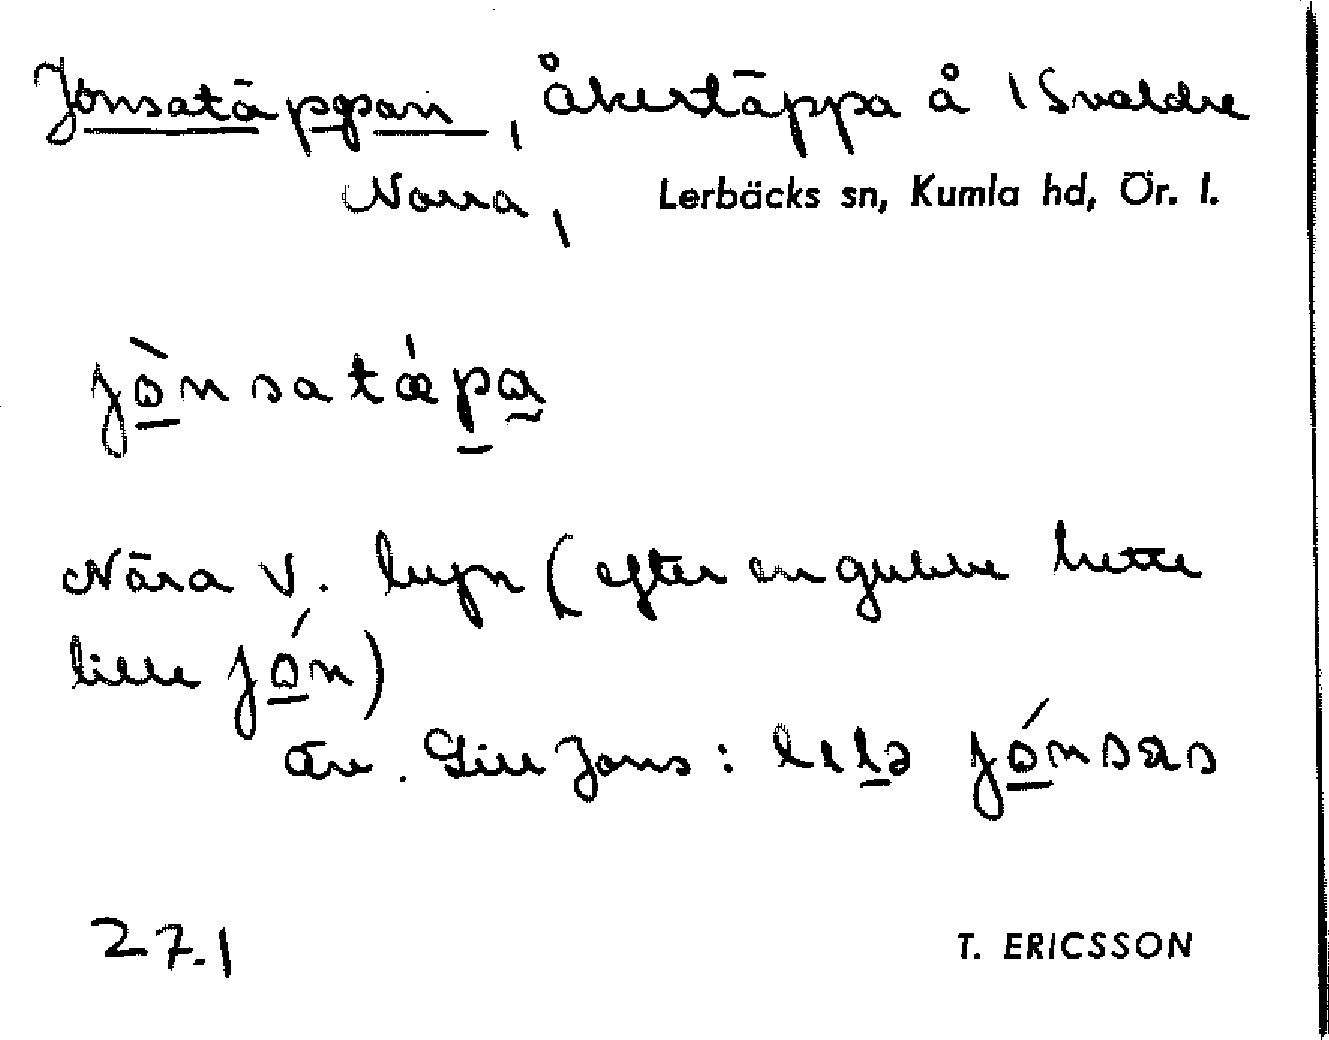 Jonsatäppan, åkertäppa å 1 Svaldre
Norra, Lerbäcks sn, Kumla hd, Ör. l.
jò̱nsatǽp̱a
Nära v. lupn (efter en gubbe hette
lille jó̱n)
Äv. Lill Jons: lɩḻə jó̱nsas
27.1 T. ERICSSON